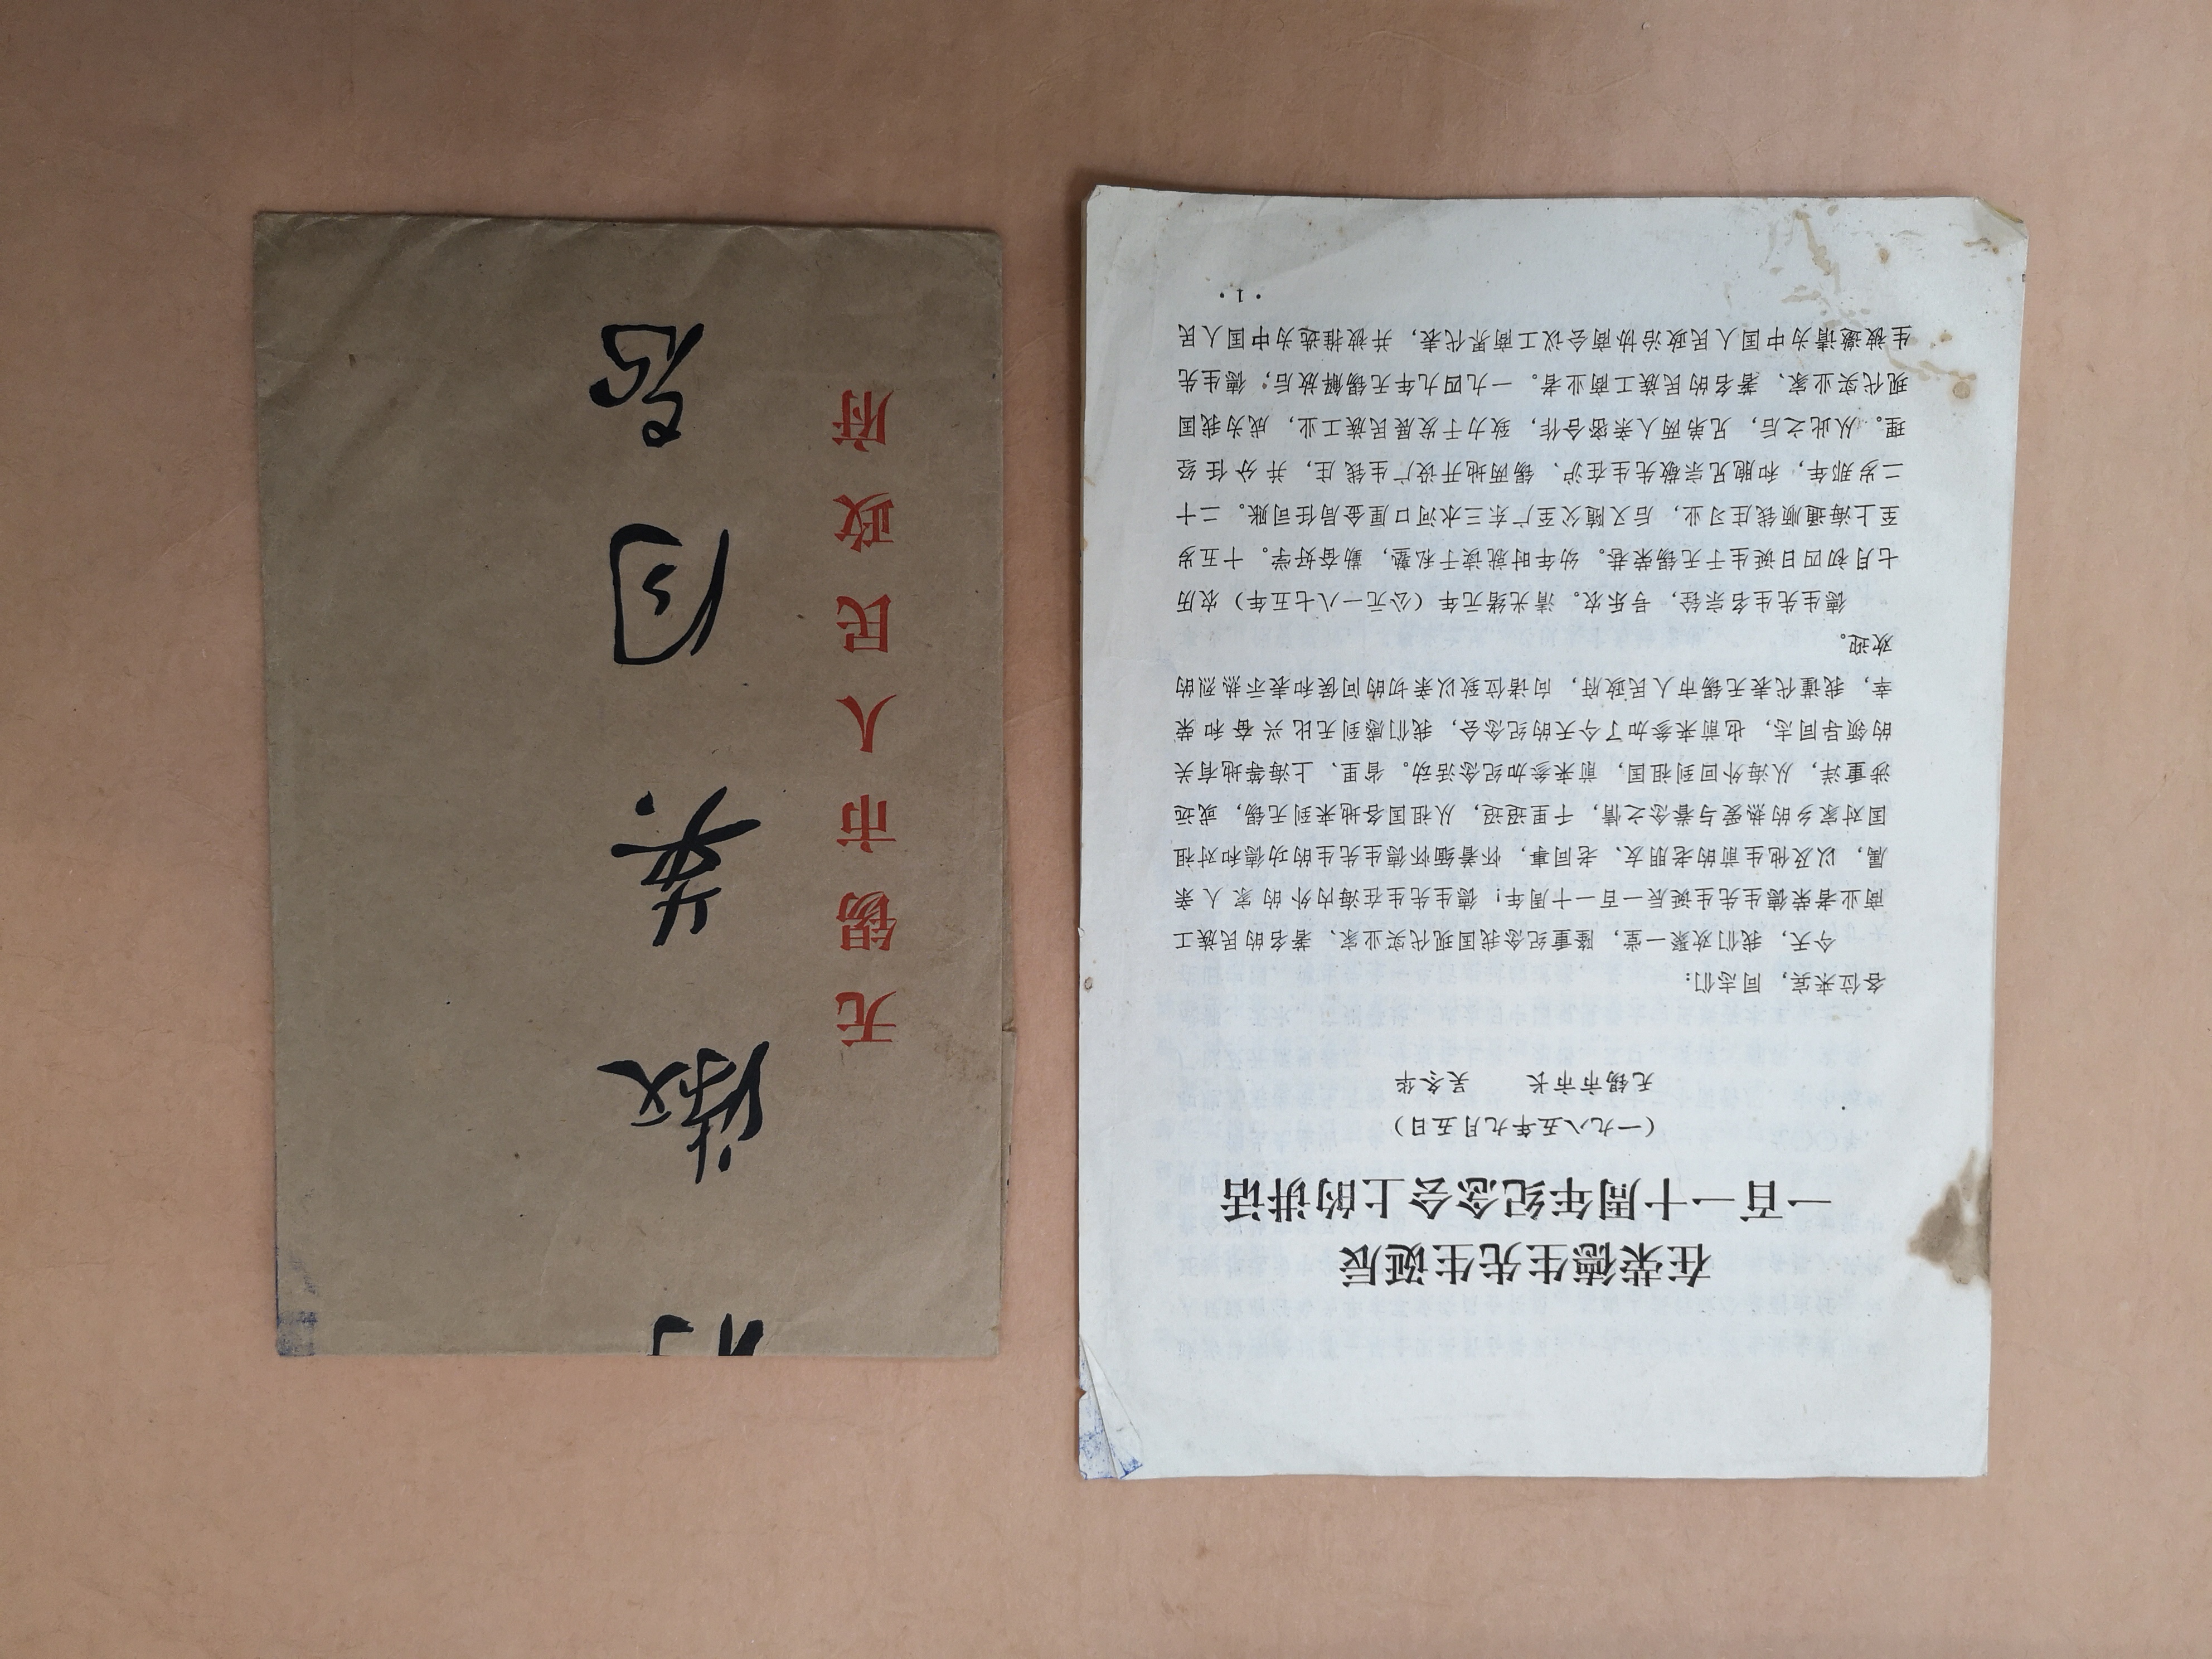 在荣德生先生诞辰
一百一十周年纪念会上的讲话
(一九八五年九月五日)
无锡市市长 吴冬华
各位来宾，同志们：
今天，我们欢聚一堂，隆重纪念我国现代实业家、著名的民族工
商业者荣德生先生诞辰一百一十周年！德生先生在海内外的家人亲
属，以及他生前的老朋友、老同事，怀着缅怀德生先生的功德和对祖
国对家乡的热爱与眷念之情，千里迢迢，从祖国各地来到无锡，或远
涉重洋，从海外回到祖国，前来参加纪念活动。省里、上海等地有关
的领导同志，也前来参加了今天的纪念会，我们感到无比兴奋和荣
幸，我谨代表无锡市人民政府，向诸位致以亲切的问侯和表示热烈的
欢迎。
德生先生名宗铨，号乐农。清光绪元年（公元一八七五年）农历
七月初四日诞生于无锡荣巷。幼年时就读于私塾，勤奋好学。十五岁
至上海通顺钱庄习业，后又随父至广东三水河口厘金局任司账。二十
二岁那年，和胞兄宗敬先生在沪、锡两地开设广生钱庄，并分任经
理。从此之后，兄弟两人亲密合作，致力于发展民族工业，成为我国
现代实业家、著名的民族工商业者。一九四九年无锡解放后；德生先
生被邀请为中国人民政治协商会议工商界代表，并被推选为中国人民
·1·
无锡市人民政府
英同志